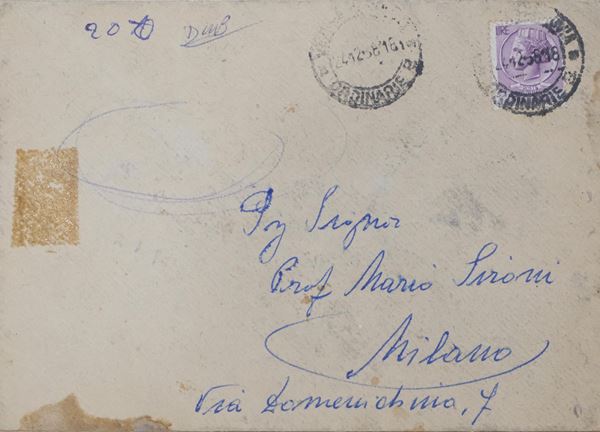 24.12.58.16
ORDINARIE
LIRE
24.12.58.16
ORDINARIE
Sig Signor
Prof Mario Sironi
Milano
Via Domenichino, 7